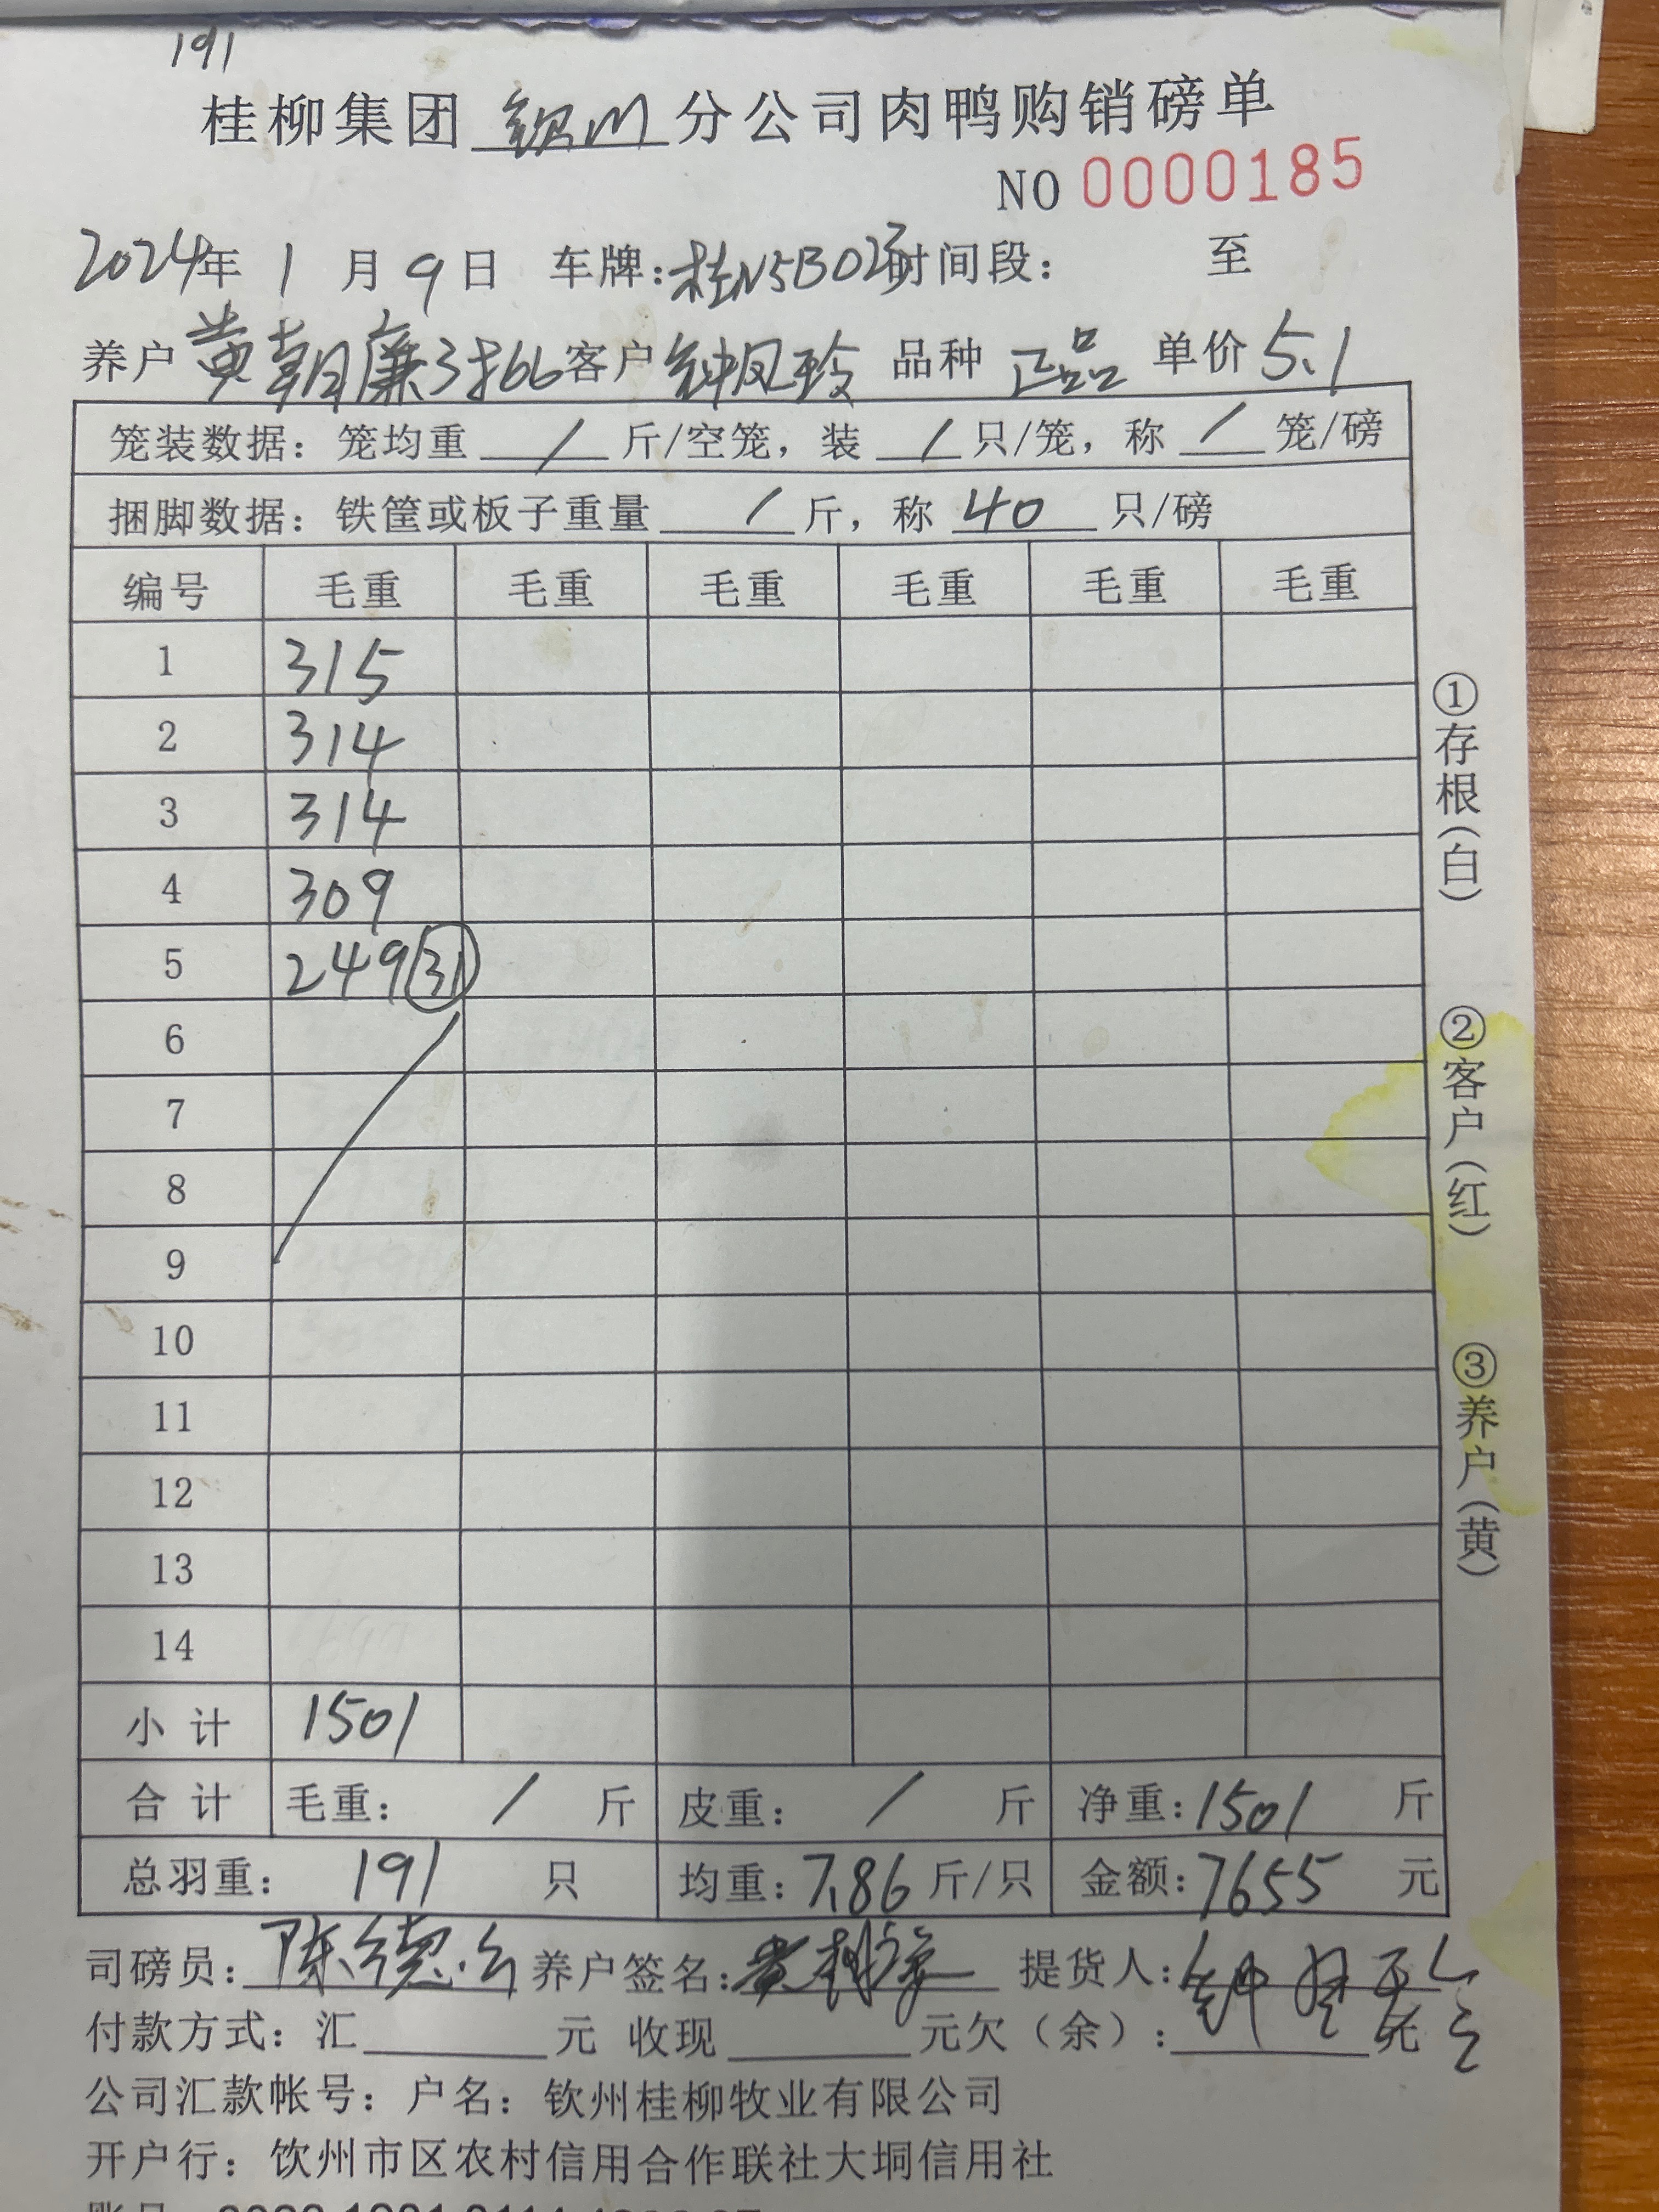 191
桂柳集团 钦州 分公司肉鸭购销磅单
NO 0000185
2024年 1 月 9 日 车牌:桂N5B02 时间段: 至
养户 黄朝廉3批66 客户 钟凤玲 品种 正品 单价 5.1
笼装数据: 笼均重 / 斤/空笼, 装 / 只/笼, 称 / 笼/磅
捆脚数据: 铁筐或板子重量 / 斤, 称 40 只/磅
编号 毛重 毛重 毛重 毛重 毛重 毛重
1 315
2 314
3 314
4 309
5 249 31
6
7
8
9
10
11
12
13
14
小计 1501
合计 毛重: / 斤 皮重: / 斤 净重: 1501 斤
总羽重: 191 只 均重: 7.86 斤/只 金额: 7655 元
司磅员: 陈德 养户签名: 黄朝廉 提货人: 钟凤玲
付款方式: 汇 元 收现 元欠(余): 元
公司汇款帐号: 户名: 钦州桂柳牧业有限公司
开户行: 钦州市区农村信用合作联社大垌信用社
①存根(白)
②客户(红)
③养户(黄)